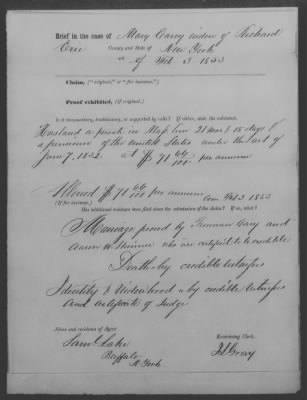 Brief in the case of Mary Carey widow of Richard
Erie County and State of New York
act of Feb 3 1853
Claim, ("original," or "for increase.")
Proof exhibited, (if original.)
Is it documentary, traditionary, or supported by rolls? If either, state the substance.
Husband a private in Mass line 21 mos & 15 days &
a pensioner of the United States under the act of
June 7, 1832 at $71 66/100 per annum
Allowed $71 66/100 per annum Com Feb 3 1853
(If for increase.) Has additional evidence been filed since the admission of the claim? If so, what?
Marriage proved by Truman Carey and
Aaron W who are certified to be credible
Death by credible witnesses
Identity & Widowhood by credible witnesses
and certificate of Judge
Name and residence of Agent
Examining Clerk.
Saml Lake
Buffalo
N. York
Gray